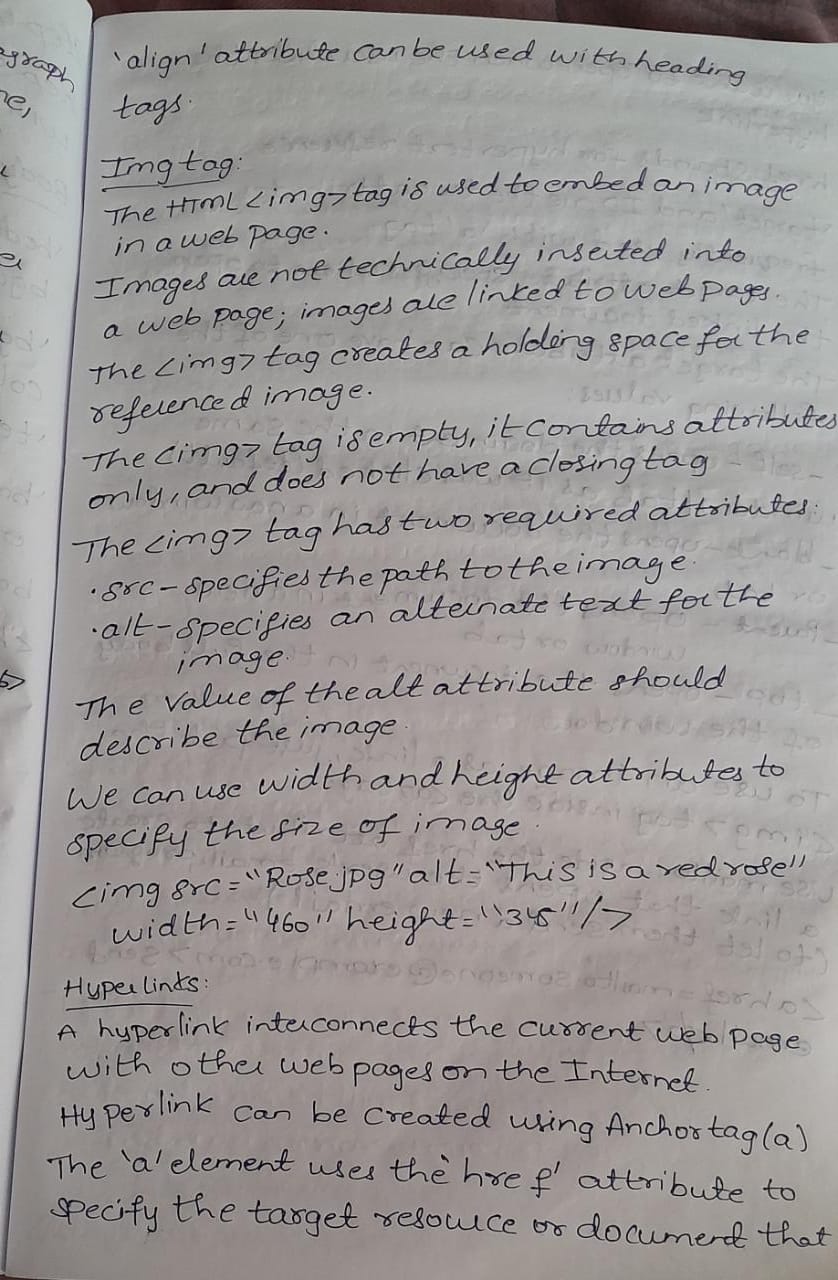 egraph
'align' attribute can be used with heading
tags.
Img tag:
The HTML <img> tag is used to embed an image
in a web page.
Images are not technically inserted into
a web page; images are linked to web pages.
The <img> tag creates a holding space for the
referenced image.
The <img> tag is empty, it contains attributes
only, and does not have a closing tag
The <img> tag has two required attributes:
• src - specifies the path to the image.
• alt - specifies an alternate text for the
image.
The value of the alt attribute should
describe the image.
We can use width and height attributes to
specify the size of image.
<img src="Rose.jpg" alt="This is a red rose"
width="460" height="345"/>
Hyperlinks:
A hyperlink interconnects the current web page
with other web pages on the Internet.
Hyperlink can be created using Anchor tag (a)
The 'a' element uses the 'href' attribute to
specify the target resource or document that